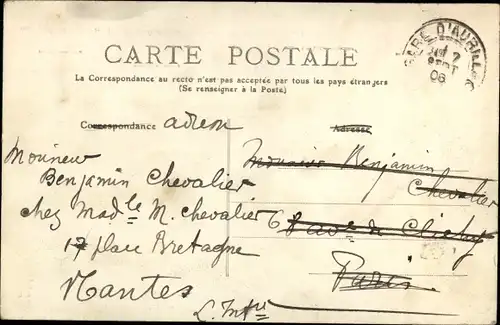 CARTE POSTALE
La Correspondance au recto n'est pas acceptée par tous les pays étrangers
(Se renseigner à la Poste)
GARE D'AURILLAC
7
06
Correspondance adresse
Adresse
Monsieur
Benjamin Chevalier
chez Madle M. Chevalier
17 place Bretagne
Nantes
L. Infre
Monsieur Benjamin
Chevalier
6 Rue de Clichy
Paris